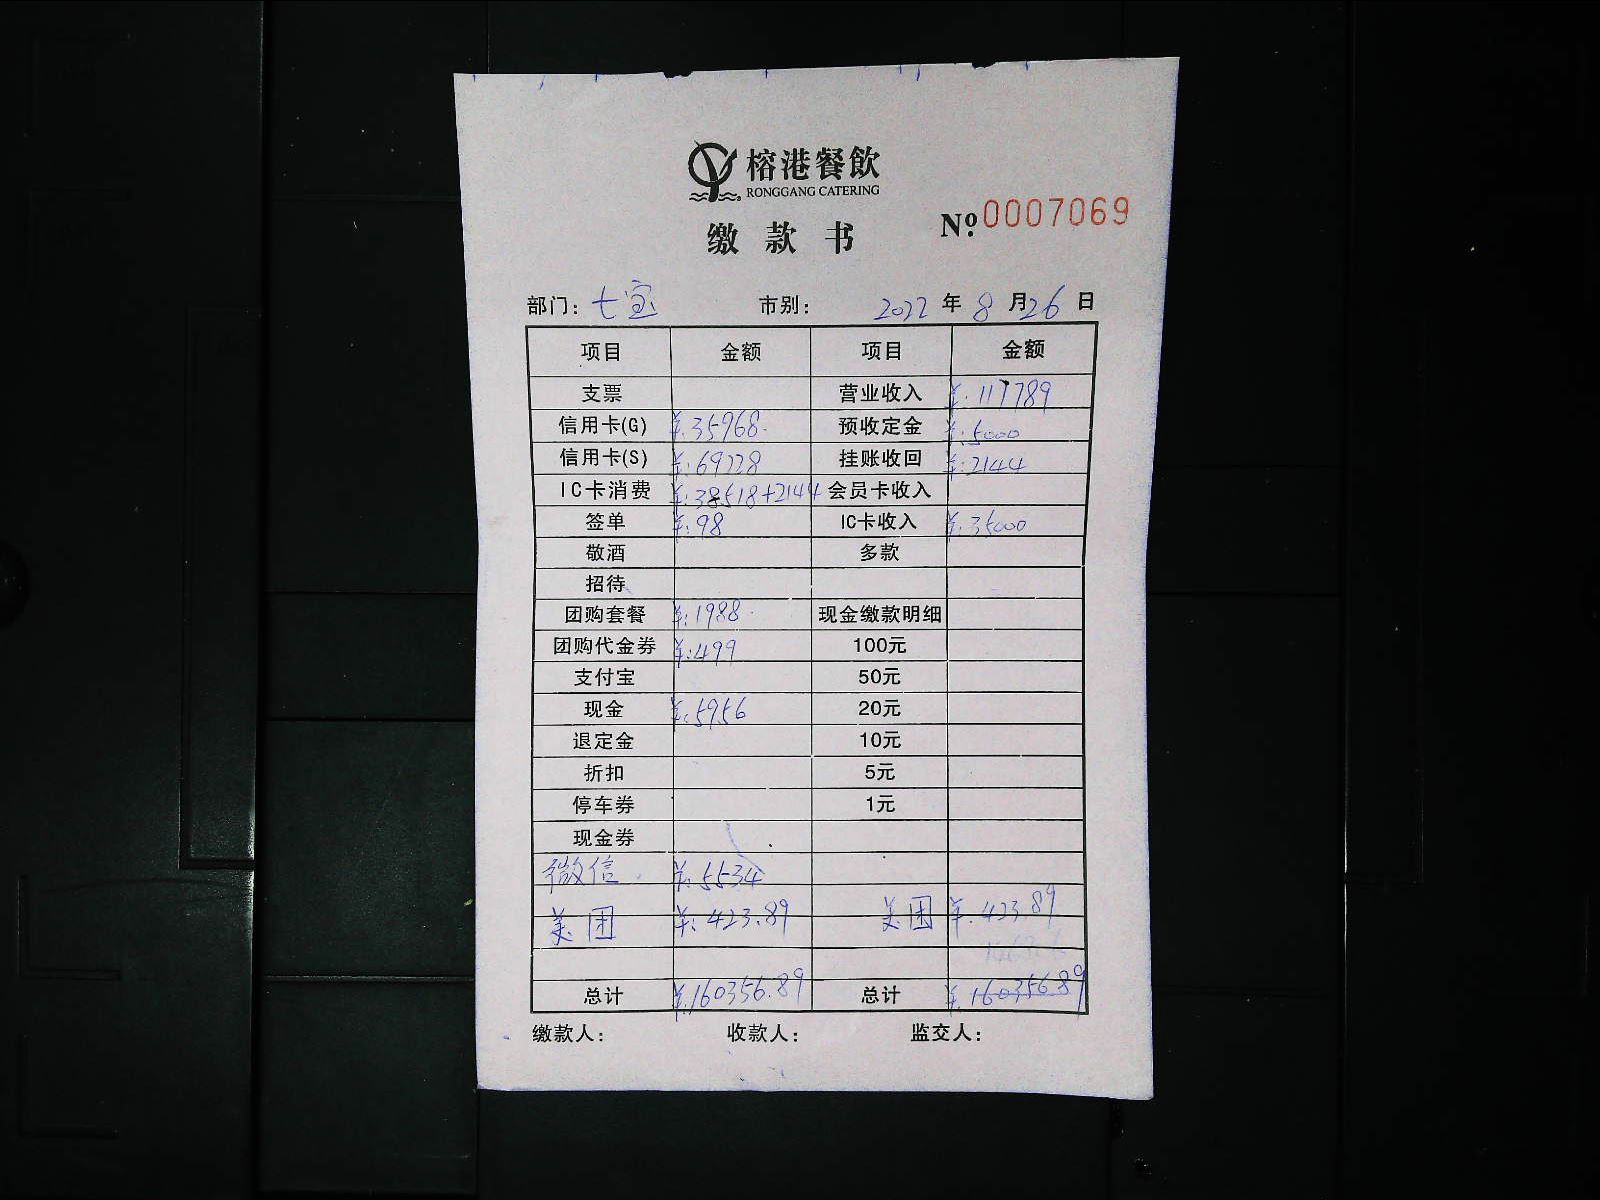 榕港餐飲
RONGGANG CATERING
缴款书 №.0007069
部门: 七宝 市别: 2022 年 8 月 26 日
项目 金额 项目 金额
支票 营业收入 ¥: 117789
信用卡(G) ¥: 35968. 预收定金 ¥: 5000
信用卡(S) ¥: 69228 挂账收回 ¥: 2144
IC卡消费 ¥: 38518+2144 会员卡收入
签单 ¥: 98 IC卡收入 ¥: 35000
敬酒 多款
招待
团购套餐 ¥: 1988. 现金缴款明细
团购代金券 ¥: 499 100元
支付宝 50元
现金 ¥: 5956 20元
退定金 10元
折扣 5元
停车券 1元
现金券
微信 ¥: 5534
美团 ¥: 423.89 美团 ¥: 423.89
总计 ¥: 160356.89 总计 ¥: 160356.89
缴款人: 收款人: 监交人: